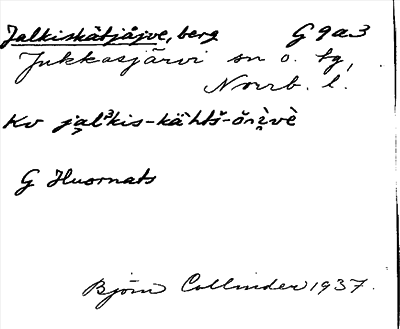 Jalkiskätjåjve, berg G 9a3
Jukkasjärvi sn o. tg,
Norrb. l.
Kv ja̯lᵊkis-kä̀htš-ŏn̯èvè
G Huornats
Björn Collinder 1937.